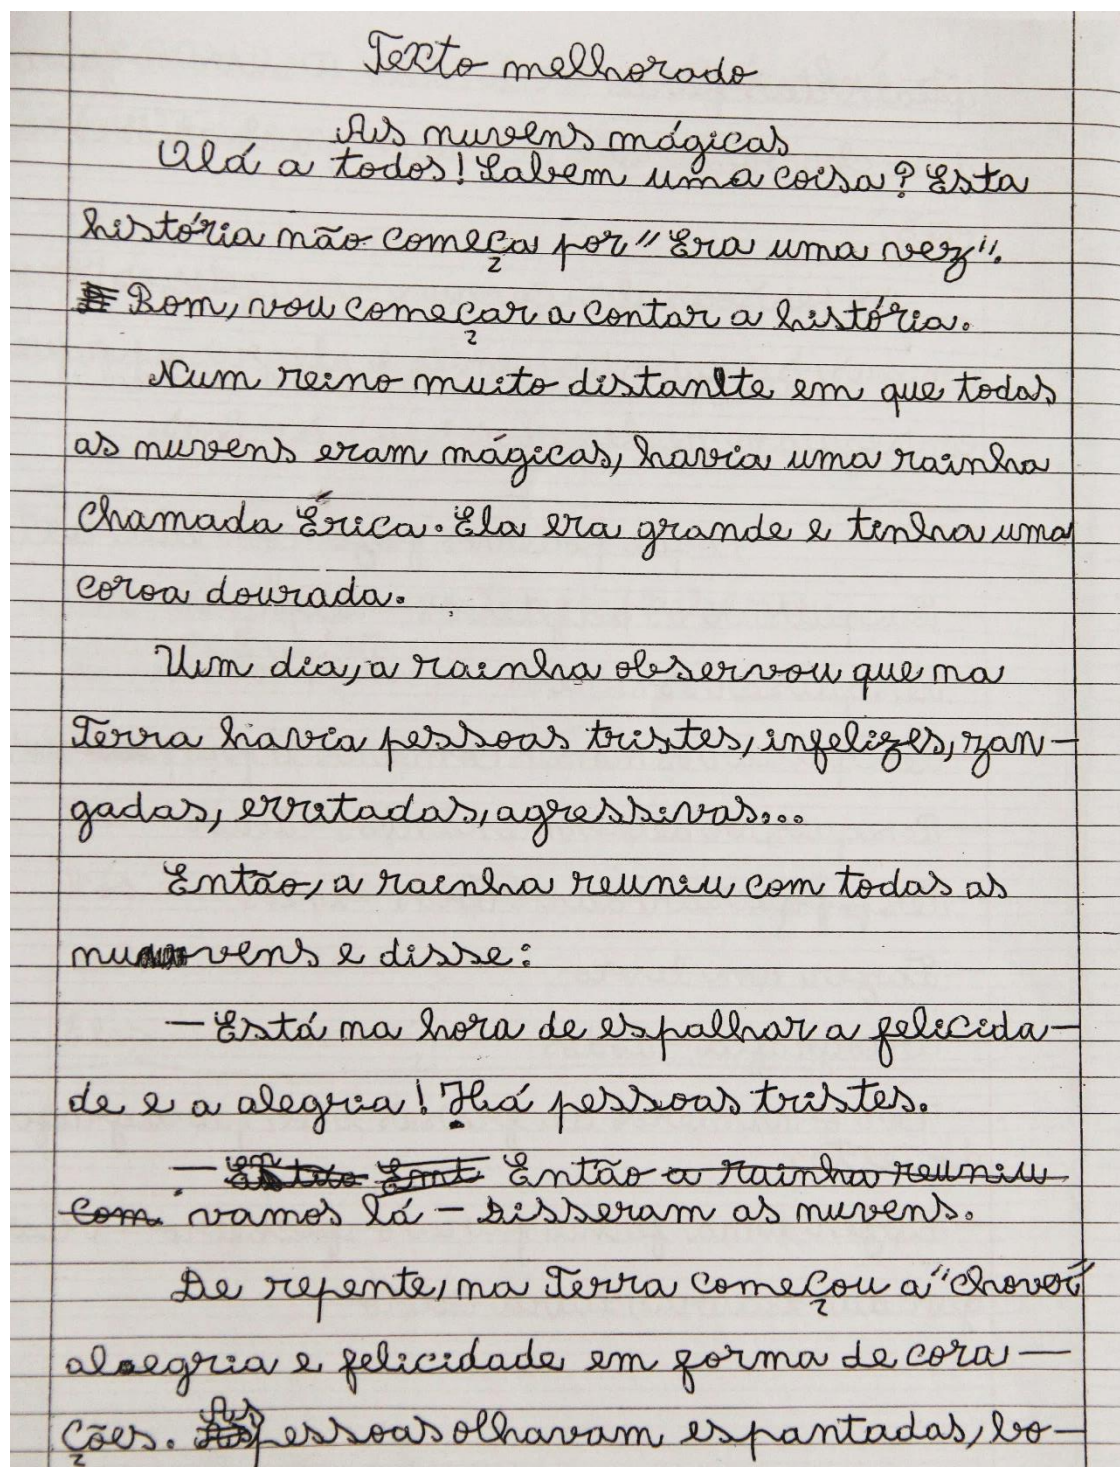 Texto melhorado
As nuvens mágicas
Olá a todos! Sabem uma coisa? Esta
história não começa por "Era uma vez".
Bom, vou começar a contar a história.
Num reino muito distante em que todas
as nuvens eram mágicas, havia uma rainha
chamada Érica. Ela era grande e tinha uma
coroa dourada.
Um dia, a rainha observou que na
Terra havia pessoas tristes, infelizes, zan-
gadas, erritadas, agressivas...
Então, a rainha reuniu com todas as
nuvens e disse:
— Está na hora de espalhar a felicida-
de e a alegria! Há pessoas tristes.
— Então a rainha reuniu
com vamos lá — Disseram as nuvens.
De repente, na Terra começou a "chover"
alegria e felicidade em forma de cora-
ções. As pessoas olhavam espantadas, bo-